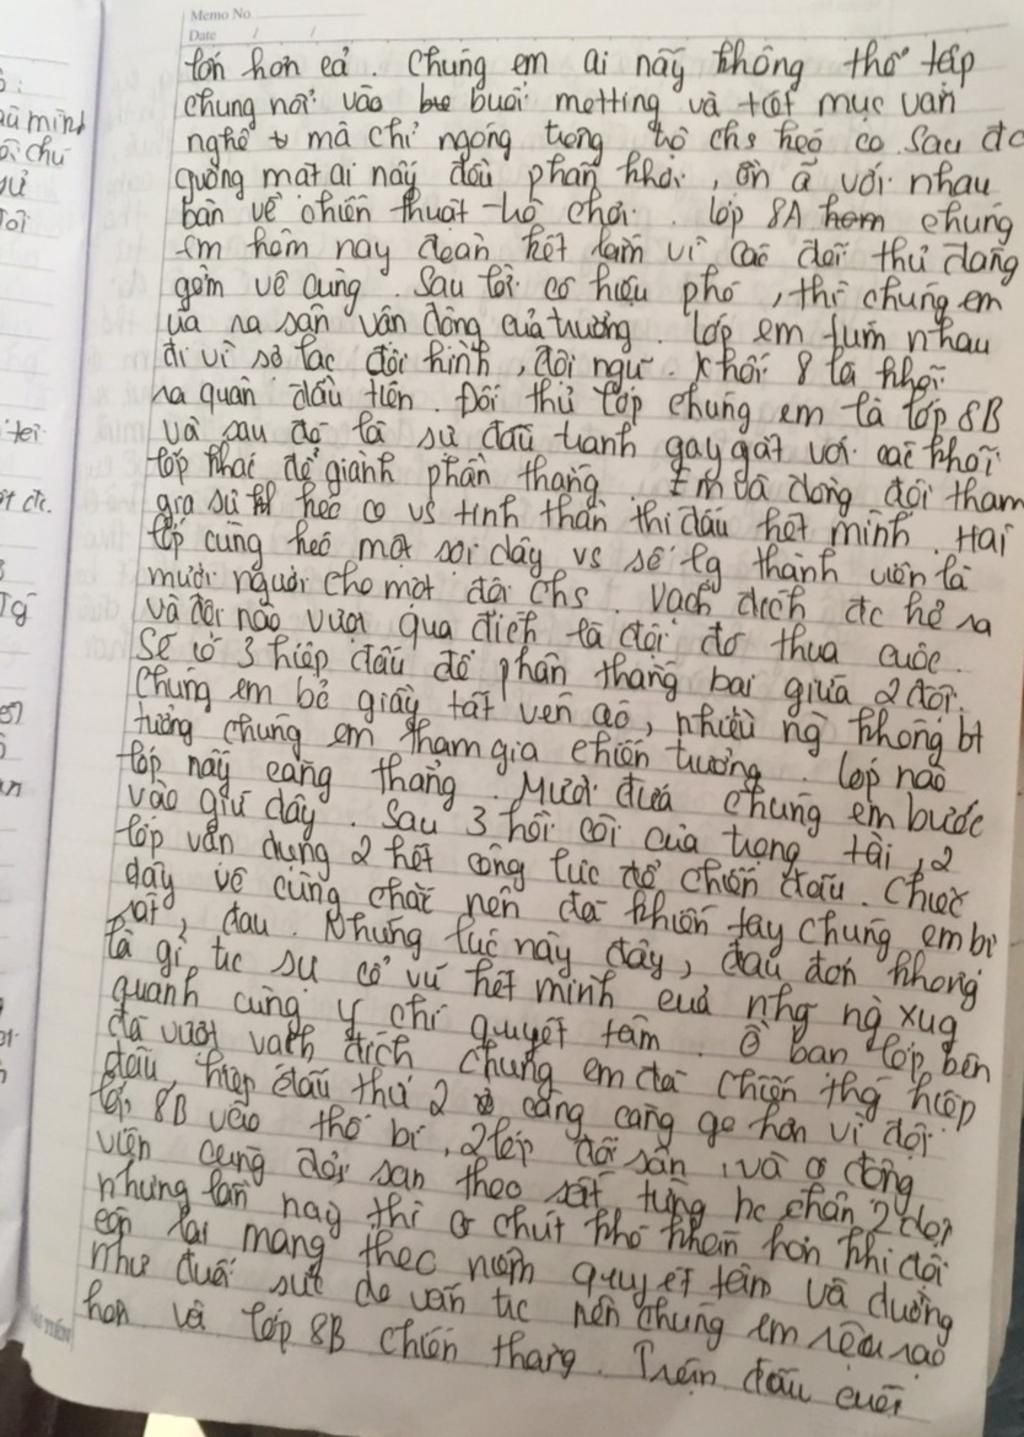 Memo No
Date / /
lớn hơn cả. Chúng em ai nấy không thể tập
chung nổi vào buổi metting và tiết mục văn
nghệ mà chỉ ngóng trông trò chs kéo co. Sau đó
gường mặt ai nấy đều phấn khởi, ồn ã với nhau
bàn về chiến thuật trò chơi. lớp 8A chúng
em hôm nay đoàn kết lắm vì các đối thủ đáng
gờm vô cùng. Sau lời cô hiệu phó, thì chúng em
ùa ra sân vân động của trường. lớp em tụm nhau
đi vì sợ lạc đội hình, đội ngũ. Khối 8 là khối
ra quân đầu tiên. Đối thủ lớp chúng em là lớp 8B
và sau đó là sự đấu tranh gay gắt với các khối
lớp khác để giành phần thắng. Em và đồng đội tham
gia sự kéo co vs tinh thần thi đấu hết mình. Hai
lớp cùng kéo một sợi dây vs số lg thành viên là
mười người cho một đội chs. Vạch đích đc kẻ ra
và đội nào vượt qua đích là đội đó thua cuộc.
Sẽ có 3 hiệp đấu để phân thắng bại giữa 2 đội.
Chúng em bỏ giầy tất vén áo, nhiều ng không bt
tưởng chúng em tham gia chiến trường. lớp nào
lớp nấy căng thẳng. Mười đứa chúng em bước
vào giữ dây. Sau 3 hồi còi của trọng tài, 2
lớp vận dụng 2 hết công lực để chiến đấu. Chiếc
dây vô cùng chắc nên đã khiến tay chúng em bị
rát, đau. Nhưng lúc này đây, đau đớn không
là gì tc sự cổ vũ hết mình của nhg ng xug
quanh cùng ý chí quyết tâm. Ồ bạn lớp bên
đã vượt vạch đích chúng em đã chiến thg hiệp
đấu, hiệp đấu thứ 2 càng căng go hơn vì đội
lớp 8B vào thế bí, 2 lớp đổi sân, và cổ động
viên cũng đổi sân theo sát từng bc chân 2 đội
nhưng lần này thì có chút khó khăn hơn khi đội
còn lại mang theo niềm quyết tâm và dường
như đuối sức do ván tc nên chúng em rệu rạo
hơn và lớp 8B chiến thắng. Trận đấu cuối